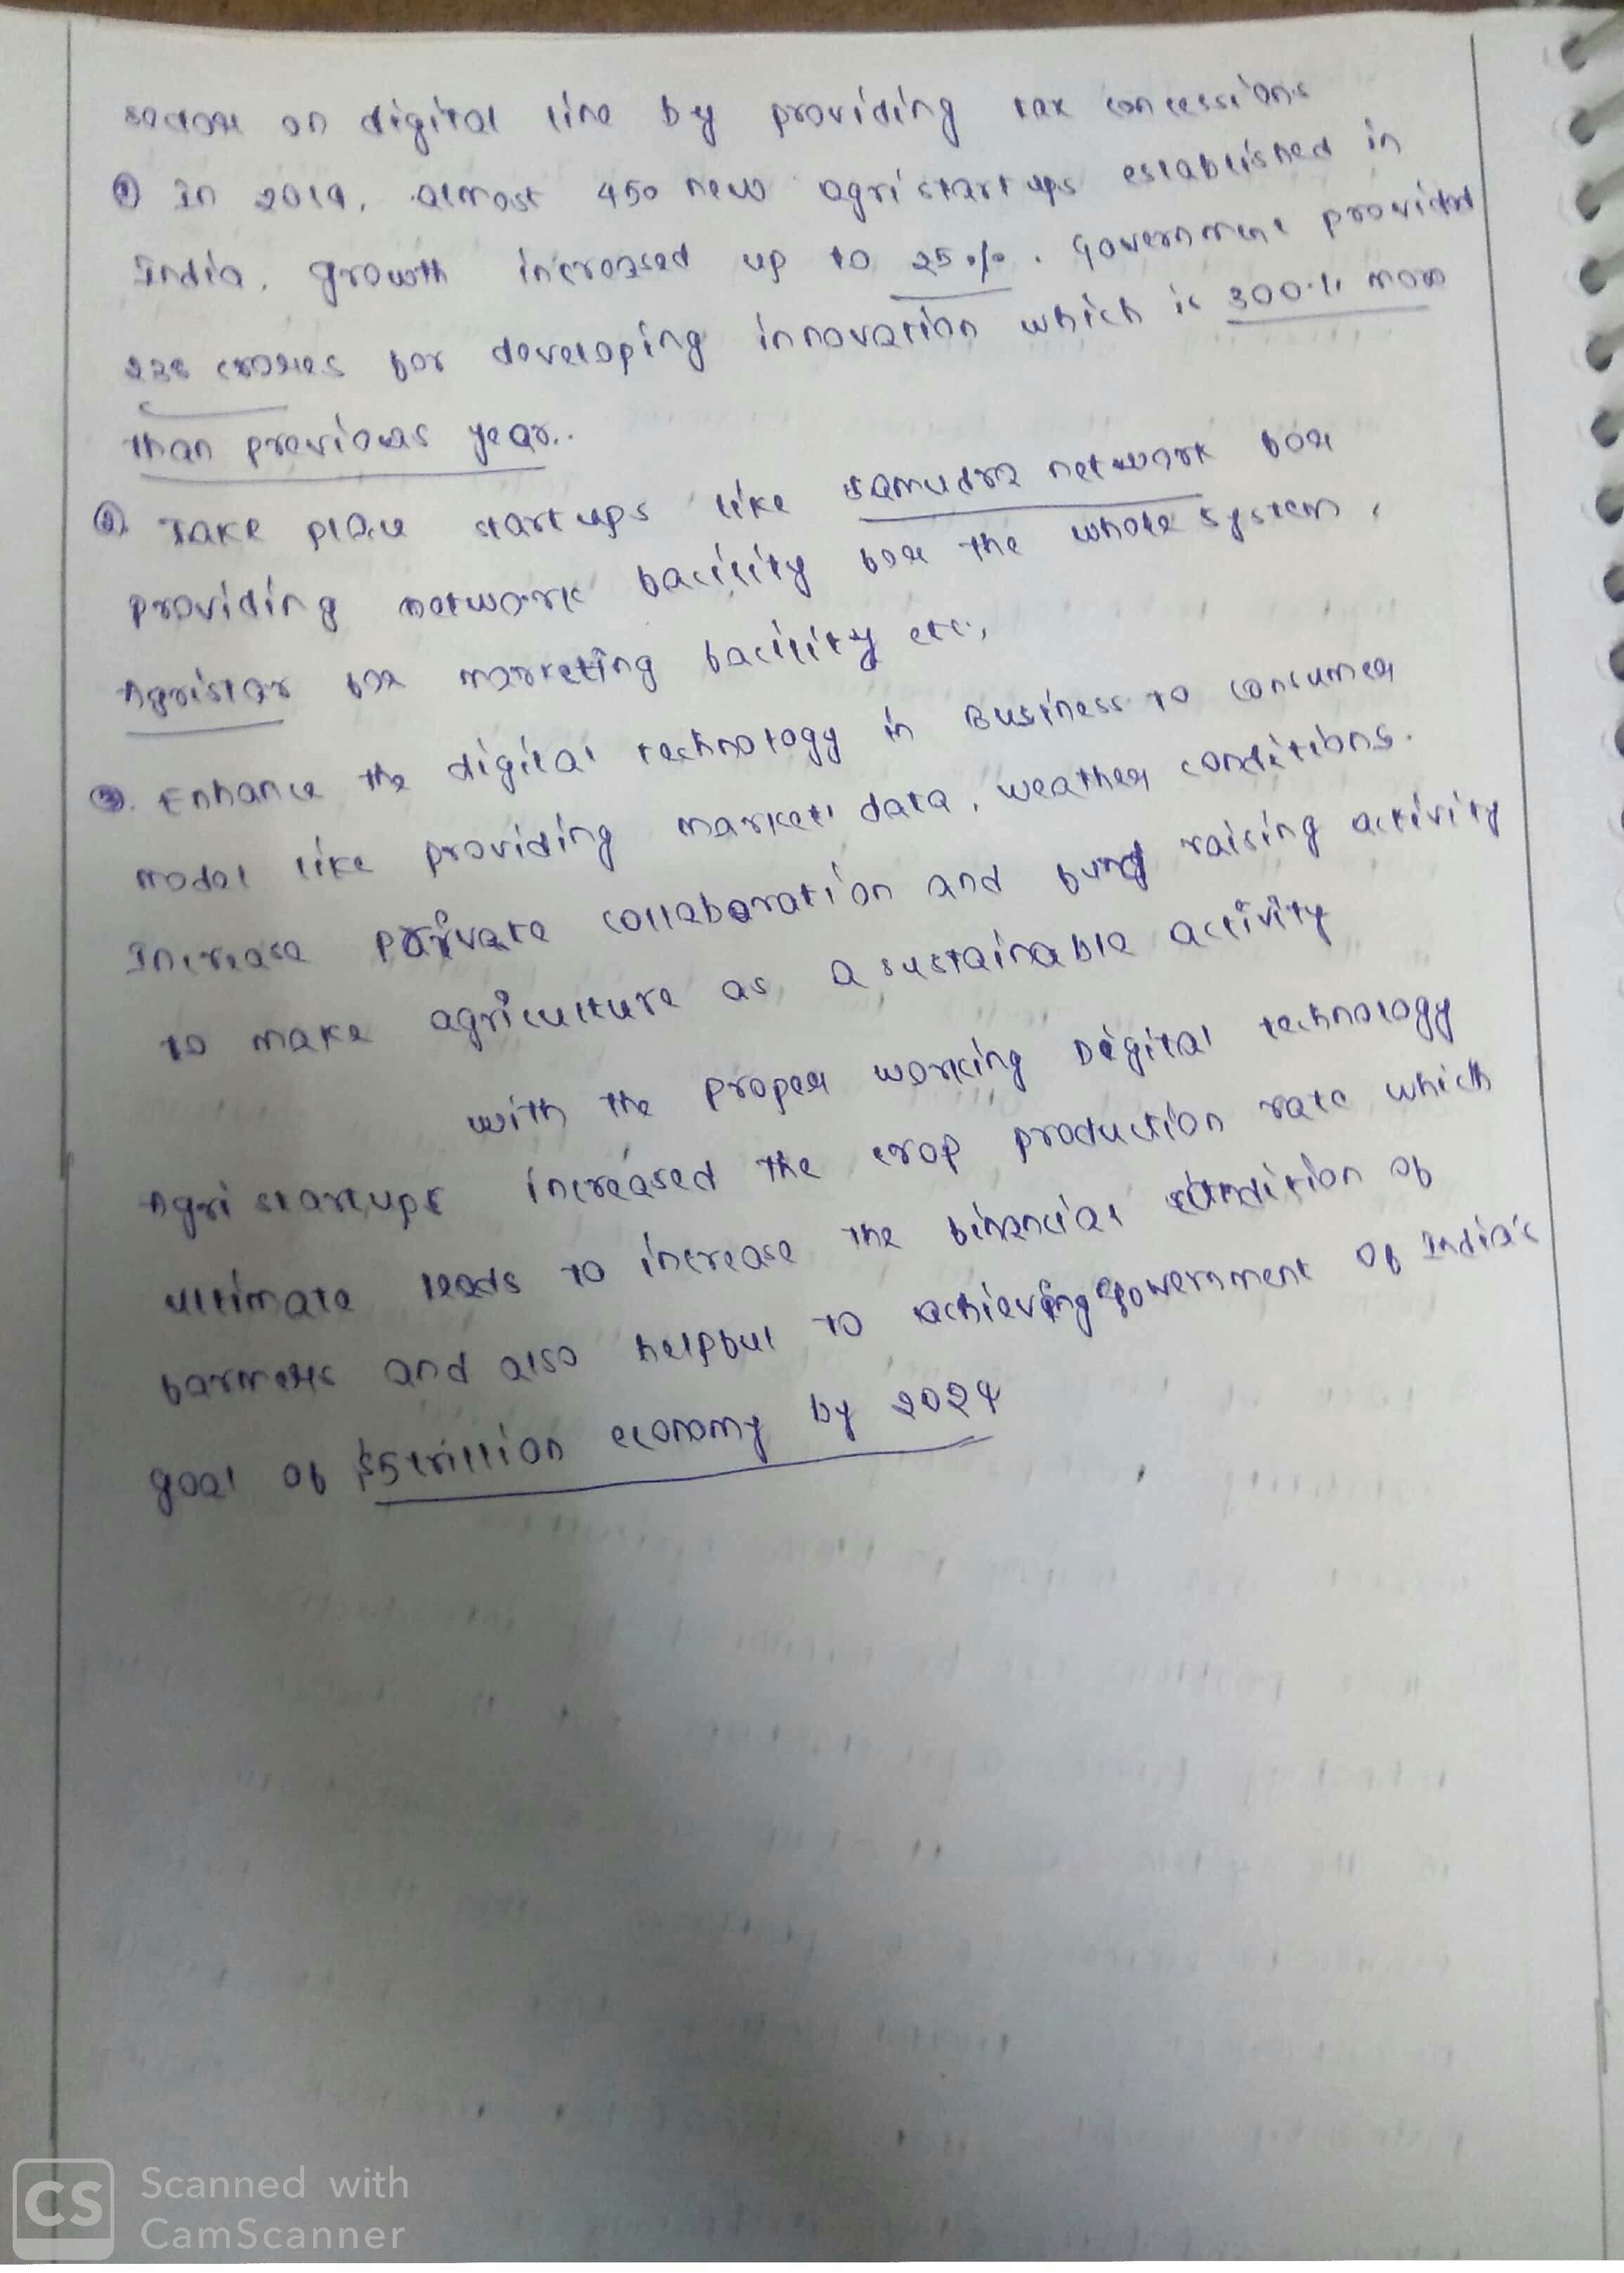 sector on digital line by providing tax concessions
① In 2019, almost 450 new agristartups established in
India. growth increased up to 25%. Government provided
238 crores for developing innovation which is 300% more
than previous year.
②. Take place startups like samudra network for
providing network facility for the whole system,
Agristar for marketing facility etc.,
③. Enhance the digital technology in Business to consumer
model like providing market data, weather conditions.
Increase private collaboration and fund raising activity
to make agriculture as a sustainable activity
with the proper working Digital technology
Agri startups increased the crop production rate which
ultimate leads to increase the financial condition of
farmers and also helpful to achieving government of India's
goal of $5 trillion economy by 2024
CS Scanned with
CamScanner